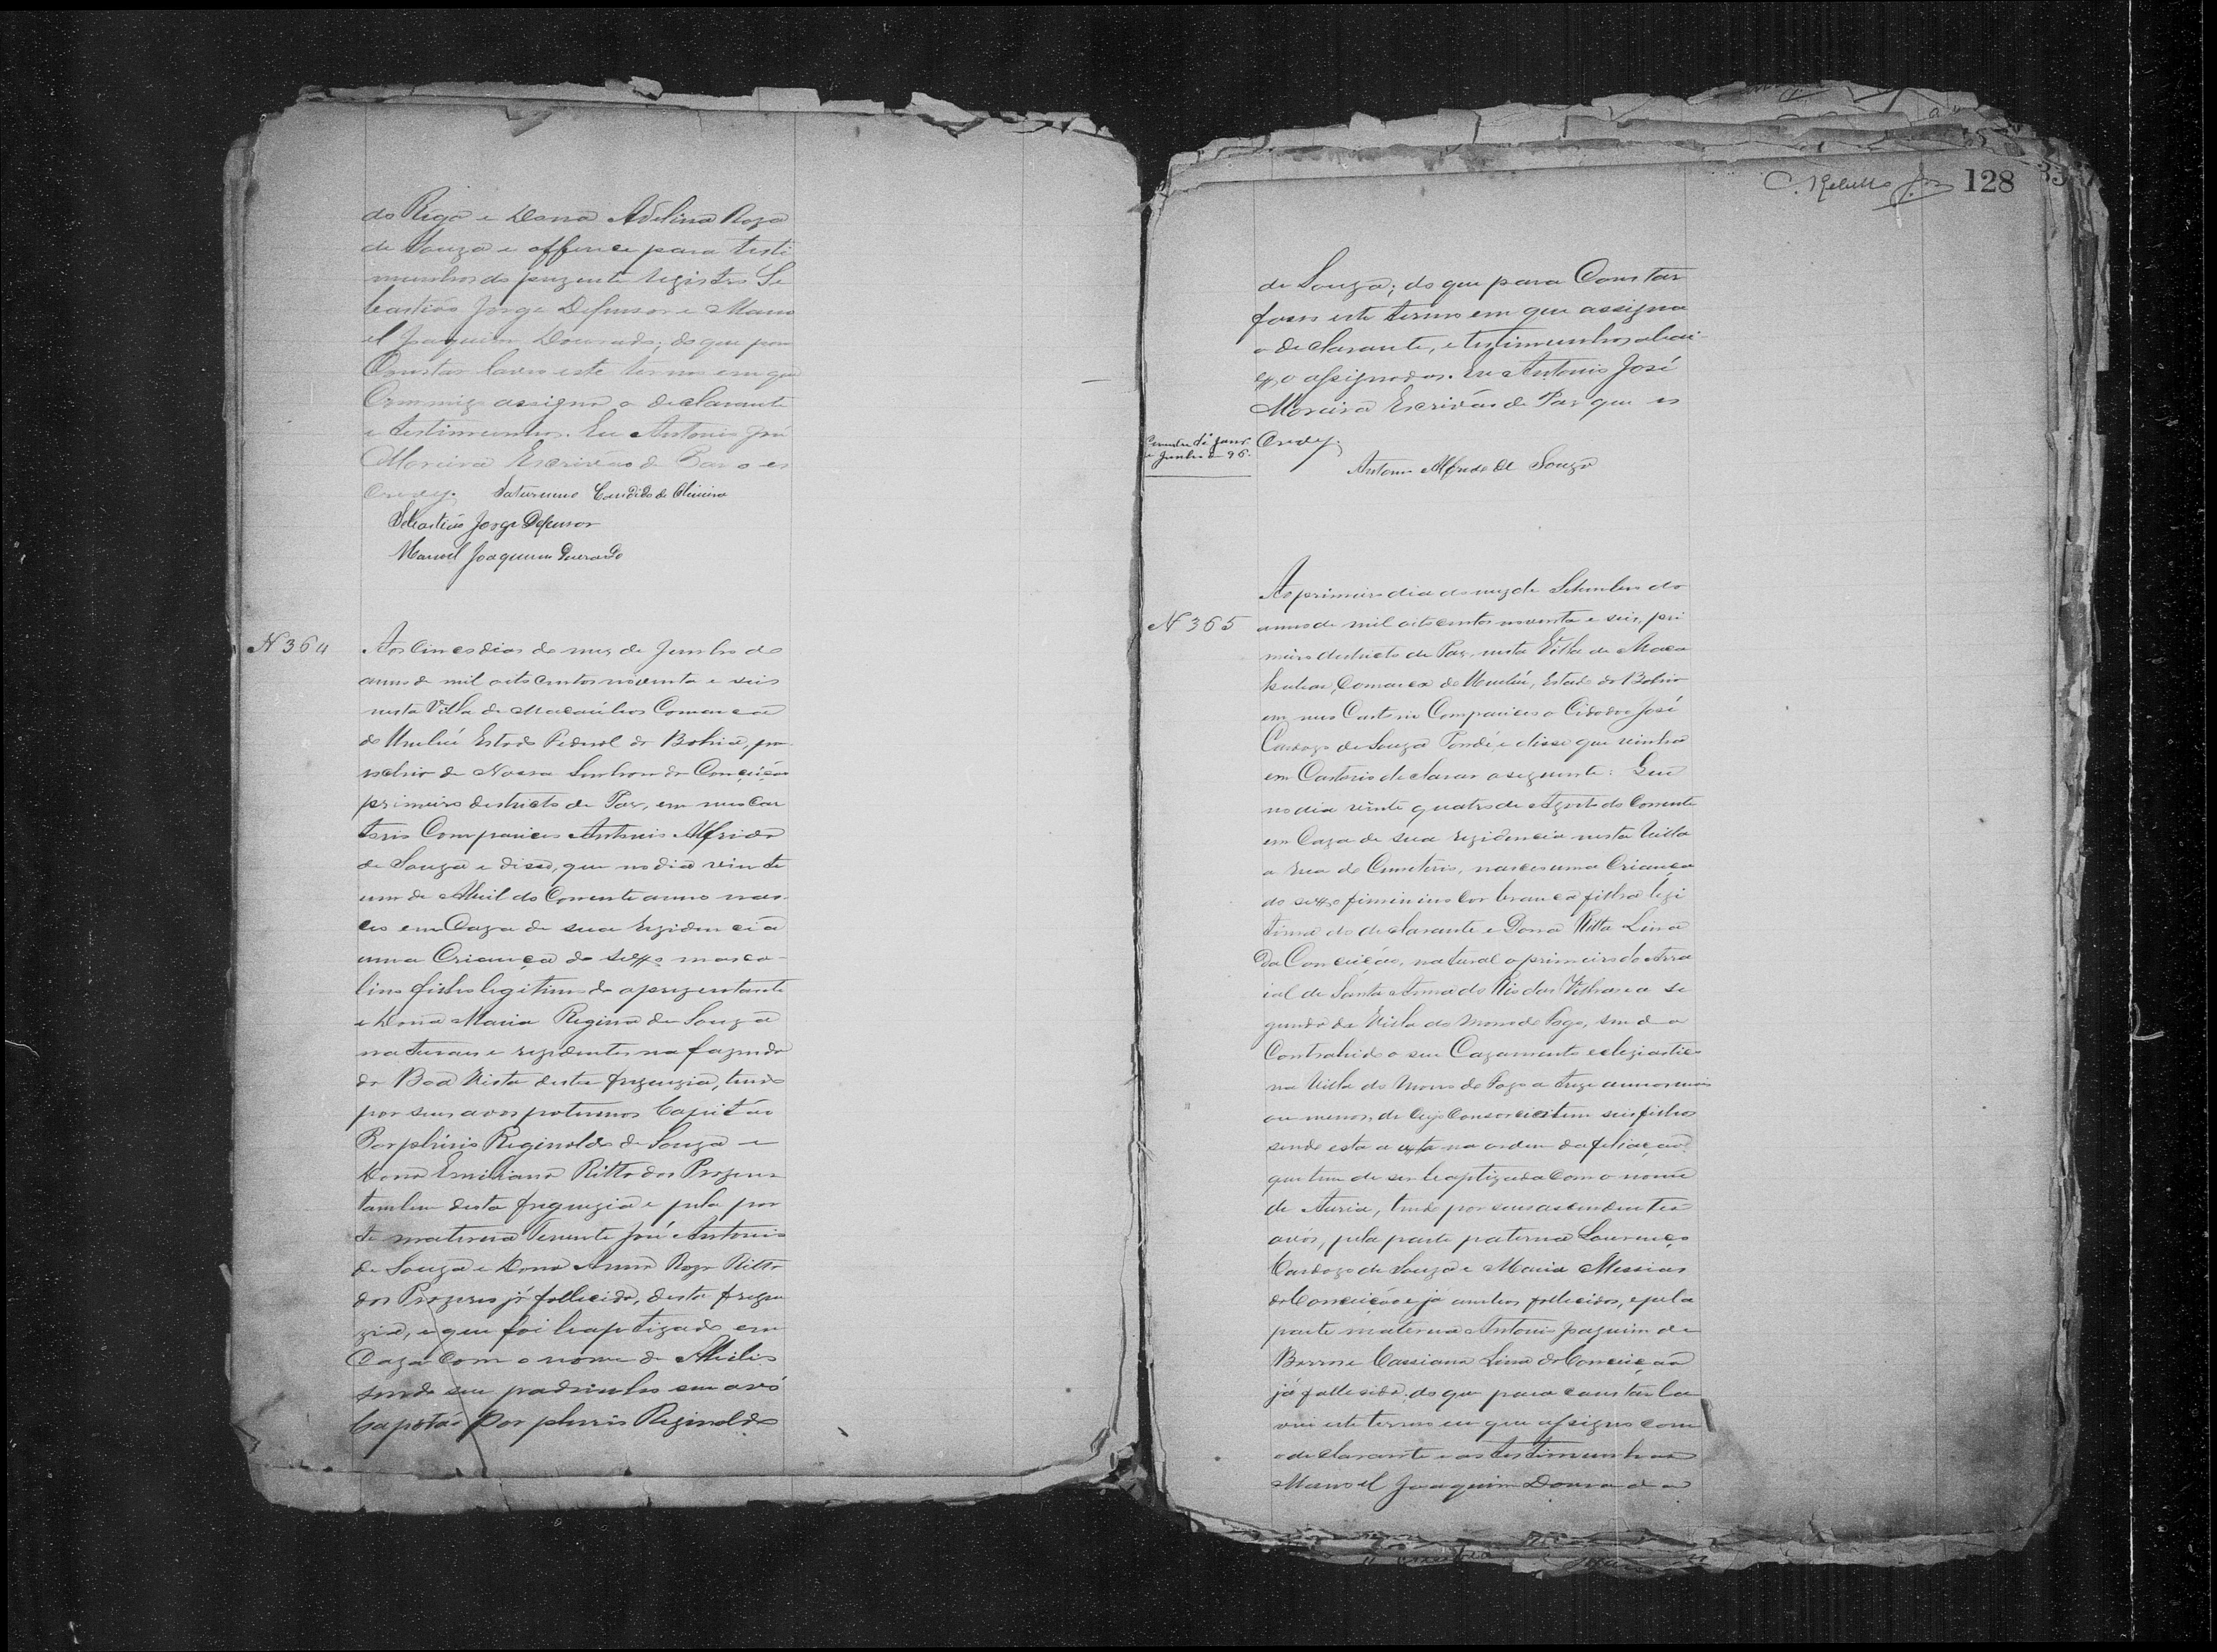 do Rego e Dona Adelina Roza
de Souza e offerece para testi
munhos do prezente registro Se
bastião Jorge Defensor e Mano
el Joaquim Dourado; do que para
Constar lavro este termo em que
Commigo assigna o declarante
e testimunhos. Eu Antonio José
Moreira Escrivão de Paz o es
crevy. Saturnino Candido de Oliveira
Sebastião Jorge Defensor
Manoel Joaquim Dourado
N 364
Aos Cinco dias do mez de Junho do
anno de mil oito centos noventa e seis
nesta Villa de Macaúbas Comarca
do Urubú Estado Federal da Bahia, pa
rochia de Nossa Senhora da Conceição
primeiro destricto de Paz, em meo Car
torio Compareceo Antonio Alfredo
de Souza e disse, que no dia vinte
um de Abril do Corrente anno nas
ceo em Caza de sua rezidencia
uma Criança do sexo masco-
lino filho legitimo do aprezentante
e Dona Maria Regina de Souza
naturaes e rezidentes na fazenda
da Boa Vista desta freguezia, tendo
por seus avos paternos Capitão
Porphirio Reginaldo de Souza e
Dona Emiliana Ritta dos Prazeres
tambem desta freguezia e pela par
te materna Tenente José Antonio
de Souza e Dona Anna Roza Ritta
dos Prazeres já fallecida, desta fregue
zia, e que foi baptizado em
Caza com o nome de
sendo seu padrinho seu avô
Capitão Porphirio Reginaldo
C. Rebello 128
de Souza; do que para Constar
faço este termo em que assigna
o declarante, e testimunhos abai-
xo assignados. Eu Antonio José
Moreira Escrivão de Paz que es
crevy.
Junho de 96.
Antonio Alfredo de Souza
N 365
Ao primeiro dia do mez de Setembro do
anno de mil oito centos noventa e seis, pri
meiro destricto de Paz, nesta Villa de Maca
hubas, Comarca do Urubú, Estado da Bahia
em meo Cartorio Compareceo o Cidadão José
Cardozo de Souza Pondé e disse que vinha
em Cartorio declarar o seguinte: Que
no dia vinte quatro de Agosto do Corrente
em Caza de sua rezidencia nesta Villa
a rua do Cemeterio, nasceo uma Criança
do sexo feminino cor branca filha legi
tima do declarante e Dona Ritta Lina
da Conceição, natural o primeiro do Arra
ial de Santa Anna do Rio das Velhas e a se
gunda da Villa do Morro do Fogo, sendo
Contrahido o seu Cazamento eclesiastico
na Villa do Morro do Fogo a treze annos mais
ou menos, de cujo Consorcio tem seis filhos
sendo esta a sexta na ordem da filiação
que tem de ser baptizada com o nome
de Auria, tendo por seus ascendentes
avós, pela parte paterna Lourenço
Cardozo de Souza e Maria Messias
da Conceição e já ambos fallecidos, e pela
parte materna Antonio Joaquim de
Barros e Cassiana Lina da Conceição
já fallecida; do que para constar la
vrei este termo em que assigno com
o declarante e as testimunhas
Manoel Joaquim Dourado